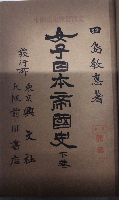 田島教惠著
女子日本帝國史 下巻
發行所 東京 興文社
大阪 前川書店